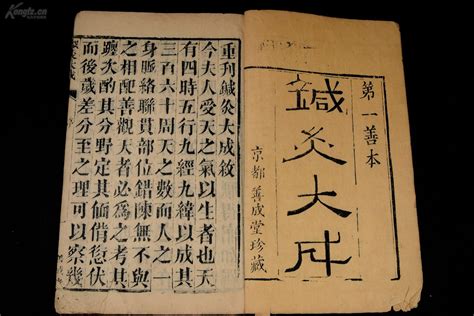 Kongfz.cn
第一善本
鍼灸大成
京都善成堂珍藏
重刊鍼灸大成敘
今夫人受天之氣以生者也天
有四時五行九經九緯以成其
三百六十周天之數而人之一
身脈絡聯貫部位錯陳無不與
之相配善觀天者必為之考其
躔次酌其分野定其愆伏
而後歲差分至之理可以察幾